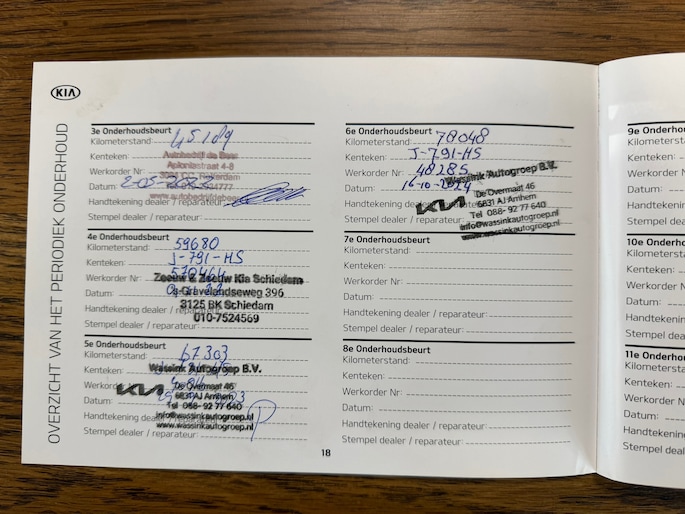 KIA
OVERZICHT VAN HET PERIODIEK ONDERHOUD
3e Onderhoudsbeurt
Kilometerstand
Kenteken:
Autobedrijf de Beer
Aploniastraat 4-8
Werkorder Nr:
Rotterdam
Datum:
Handtekening dealer / reparateur:
Stempel dealer / reparateur:
4e Onderhoudsbeurt
Kilometerstand: 59680
Kenteken: J-791-HS
Werkorder Nr: 570464
Zeeuw & Zeeuw Kia Schiedam
Datum:
's-Gravelandseweg 396
3125 BK Schiedam
Handtekening dealer / reparateur:
010-7524569
Stempel dealer / reparateur:
5e Onderhoudsbeurt
Kilometerstand: 67303
Kenteken:
Wassink Autogroep B.V.
Werkorder
KIA
De Overmaat 46
Datum:
6831 AJ Arnhem
Tel 088- 92 77 640
Handtekening dealer / reparateur:
info@wassinkautogroep.nl
www.wassinkautogroep.nl
Stempel dealer / reparateur:
6e Onderhoudsbeurt
Kilometerstand: 78048
Kenteken: J-791-HS
Werkorder Nr: 48285
Wassink Autogroep B.V.
Datum: 16-10-2024
KIA
De Overmaat 46
6831 AJ Arnhem
Handtekening
Tel 088- 92 77 640
Stempel dealer / reparateur:
info@wassinkautogroep.nl
www.wassinkautogroep.nl
7e Onderhoudsbeurt
Kilometerstand:
Kenteken:
Werkorder Nr:
Datum:
Handtekening dealer / reparateur:
Stempel dealer / reparateur:
8e Onderhoudsbeurt
Kilometerstand:
Kenteken:
Werkorder Nr:
Datum:
Handtekening dealer / reparateur:
Stempel dealer / reparateur:
18
9e Onderho
Kilometersta
Kenteken:
Werkorder N
Datum:
Handtekenin
Stempel dea
10e Onderho
Kilometersta
Kenteken:
Werkorder N
Datum:
Handtekenin
Stempel dea
11e Onderho
Kilometersta
Kenteken:
Werkorder
Datum:
Handtekenin
Stempel dea